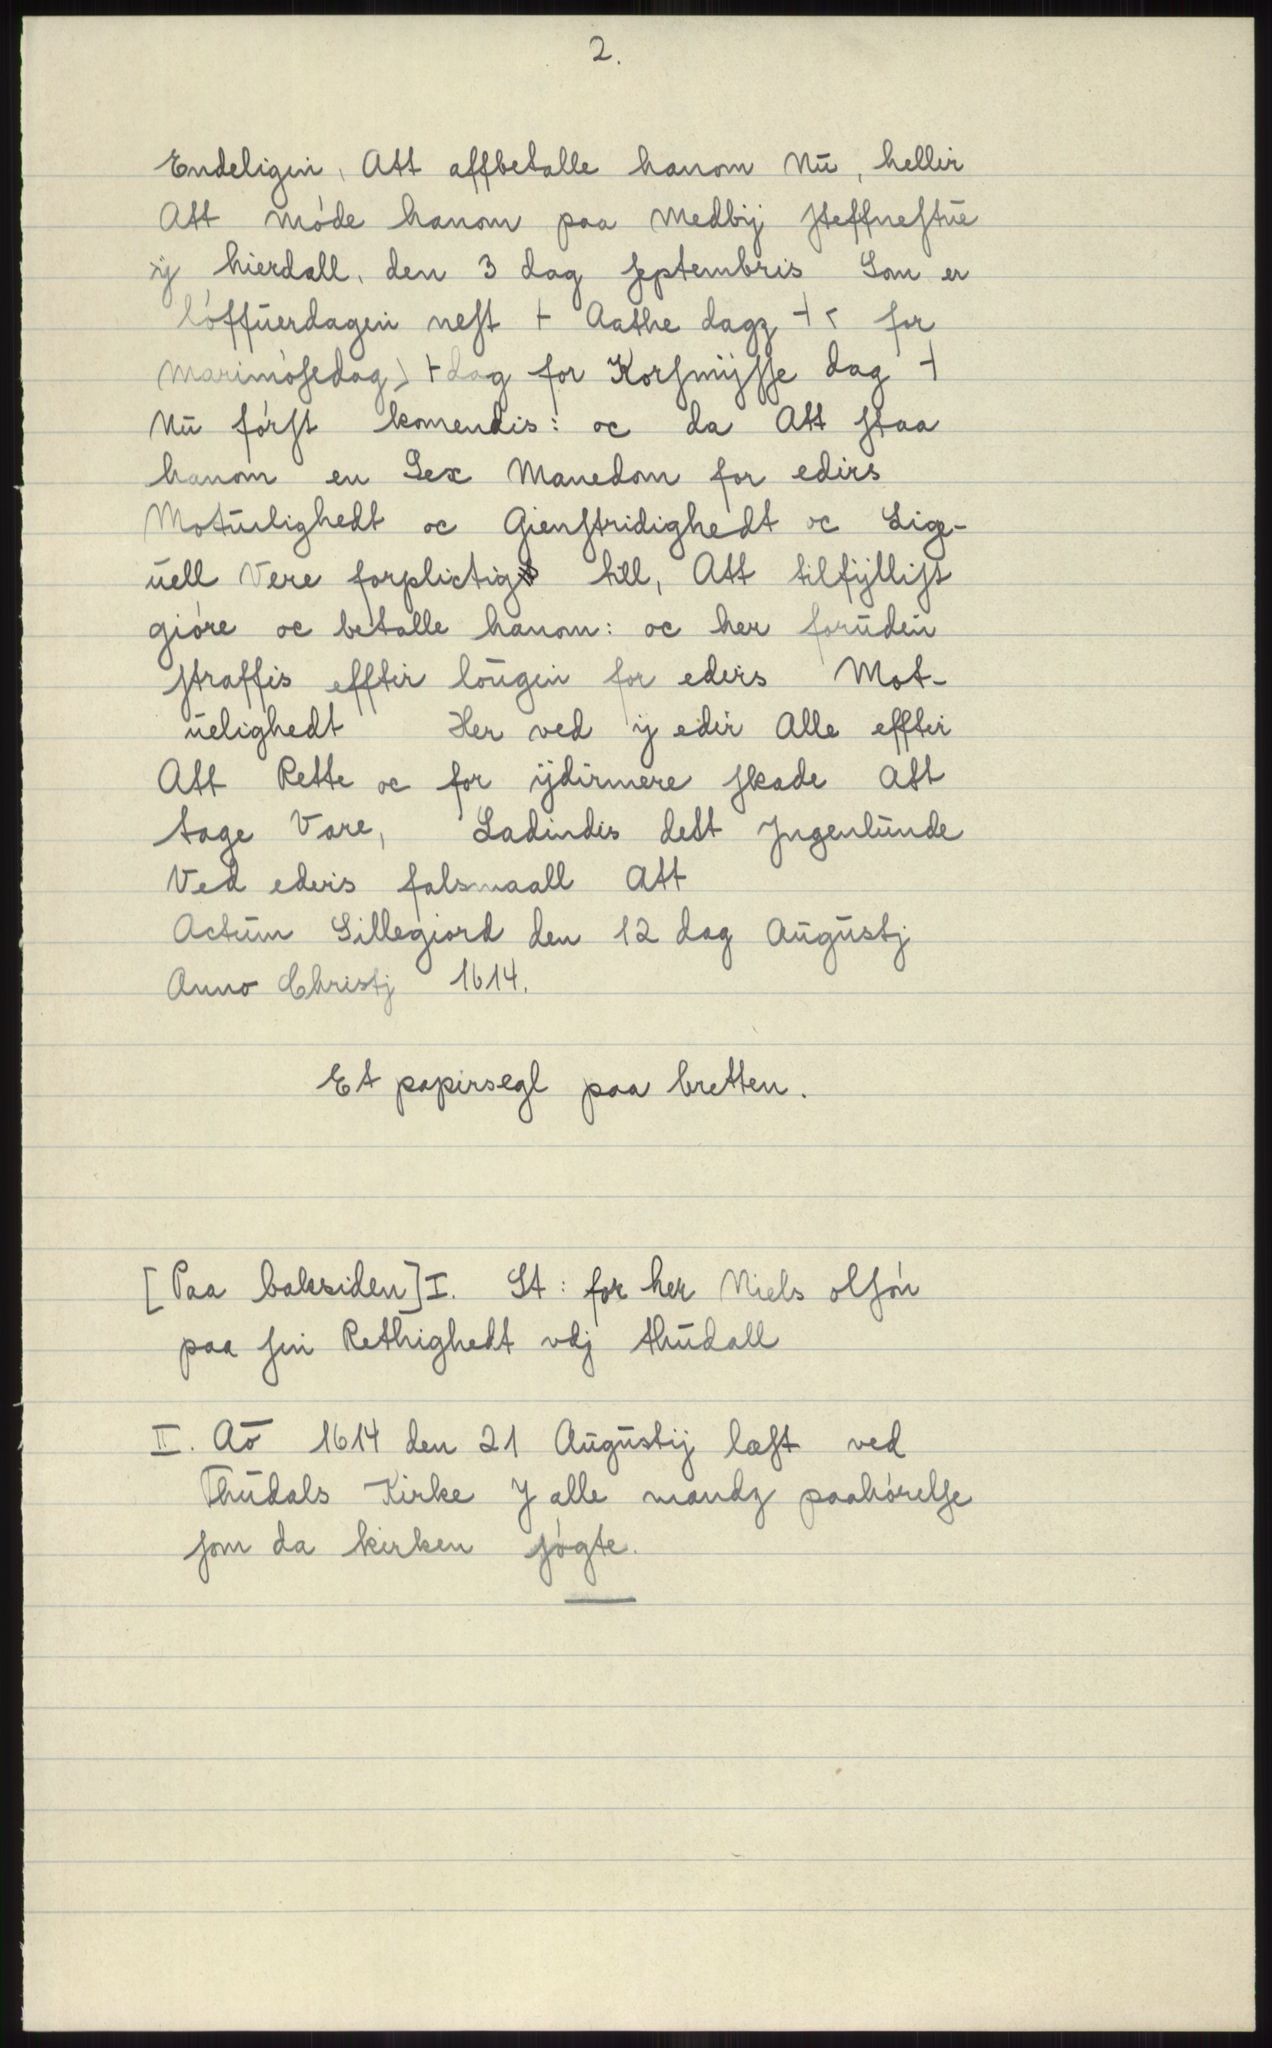 2.
Endeligin, Att affbetalle hanom Nū, hellir
Att móde hanom paa Medbÿ ſteffneſtūe
ÿ hierdall, den 3 dag ſeptembris Som er
lóffūerdagen neſt ⊢ Aathe dagz ⊣ < for
Marimóſedag > ⊢ dag for Korſmÿſſe dag ⊣
Nū fórſt komendis: oc da Att ſtaa
hanom en Sex Manedom for edirs
Motūilighedt oc Gienſtridighedt oc Lige-
ūell Vere forplictig till, Att tilfÿlliſt
gióre oc betalle hanom: oc her forūden
ſtraffis efftir loūgin for edirs Mot-
ūelighedt Her ved ÿ edir Alle efftir
Att Rette oc for ÿdirmere ſkade Att
tage Vare, Ladindis dett Jngenlūnde
Ved edirs falsmaall Att
Actūm Sillegiord den 12 dag Aūgūstj
Anno Christj 1614.
Et papirsegl paa bretten.
[Paa baksiden] I. St: for her Niels olſón
paa ſin Rethighedt vdj thūdall
II. Aō 1614 den 21 Aūgūstÿ læſt ved
Thūdals Kirke J alle mandz paahórelſe
ſom da kirken ſógte.